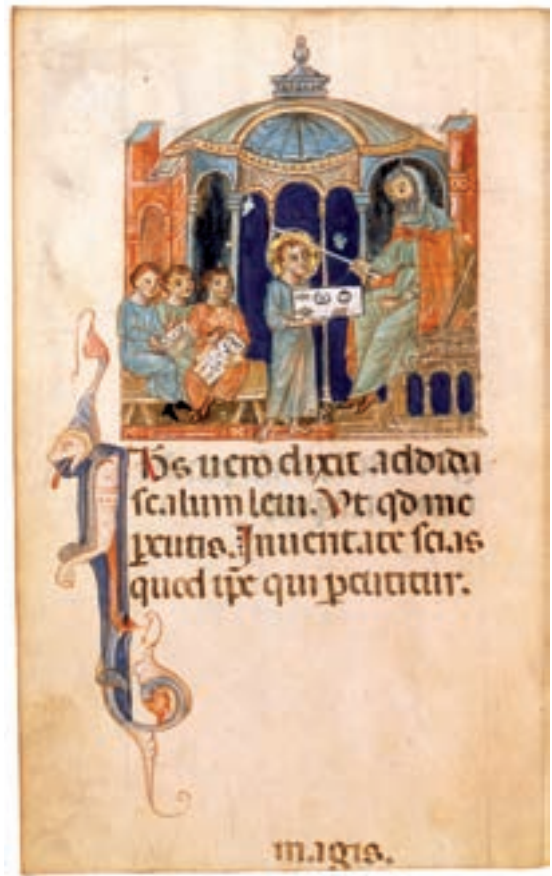 Ihs uero dixit ad dida
scalum leui. Vt qd me
percutis. In ueritate scias
quod ipse qui percutitur.
magis.